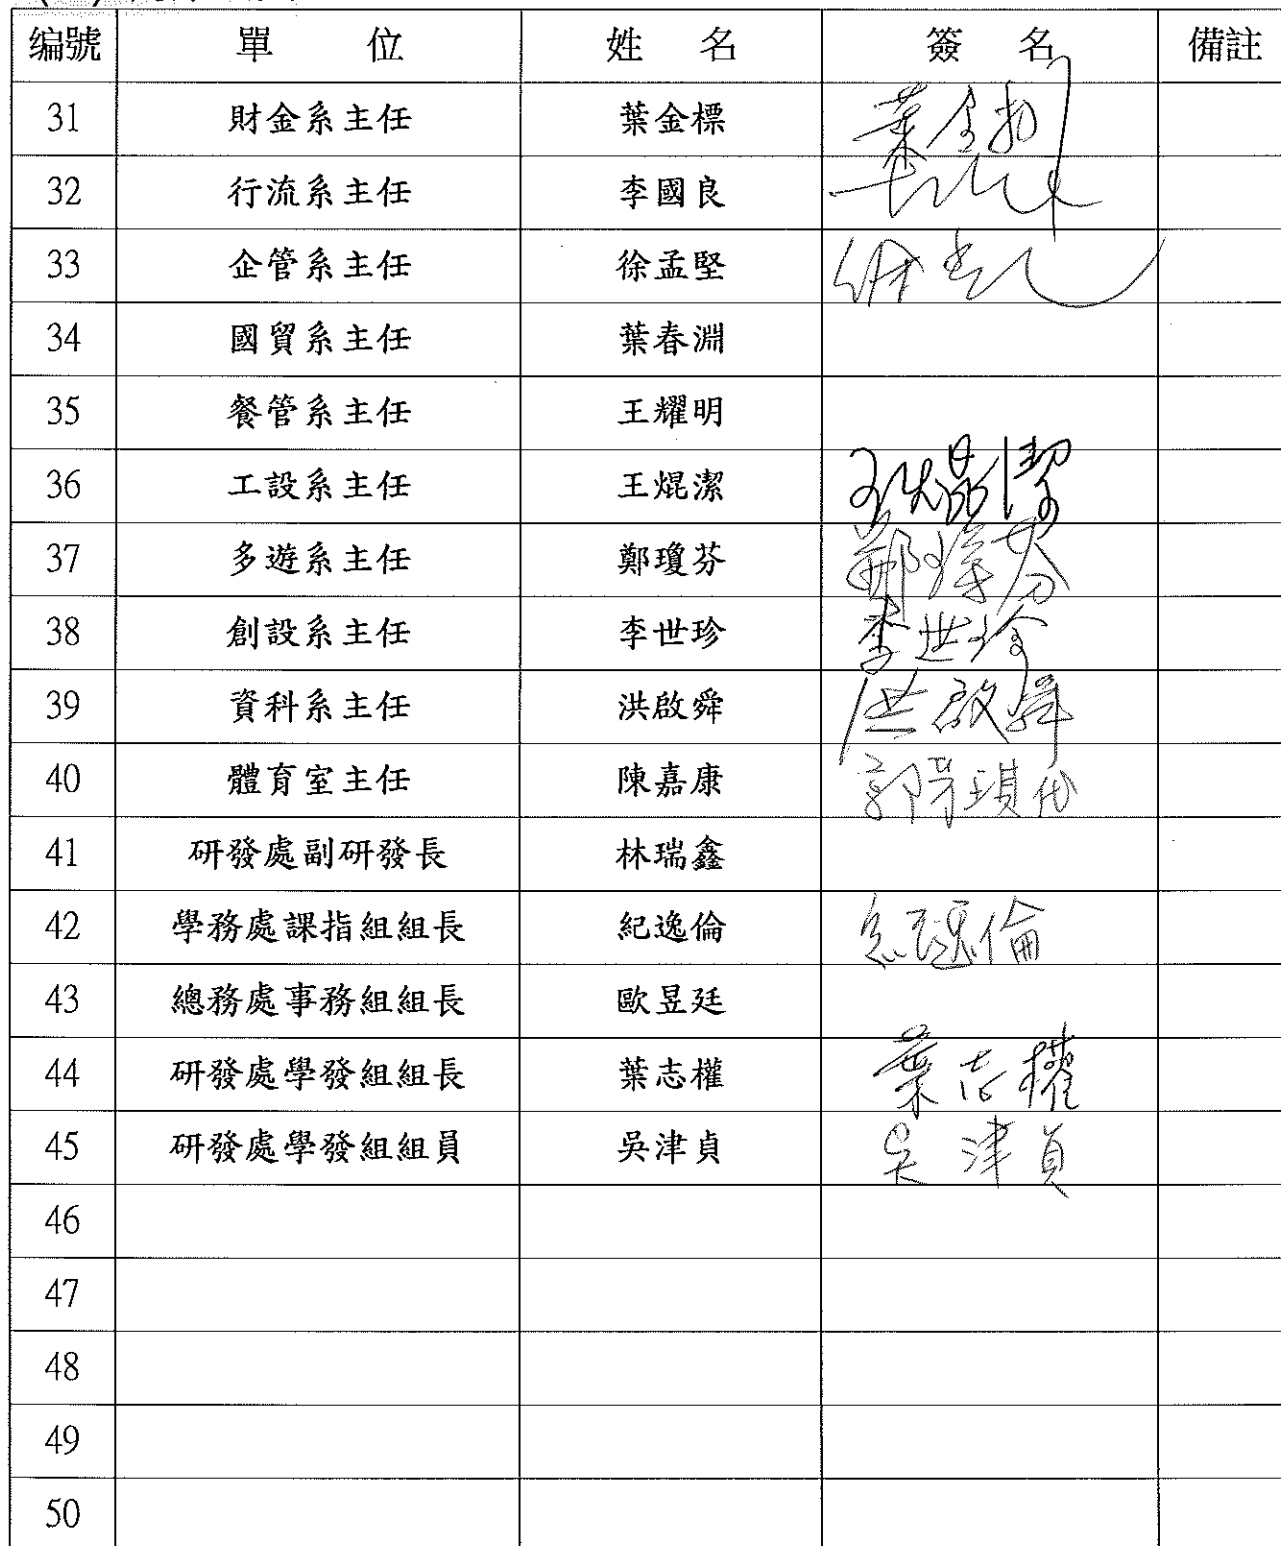 編號 單 位 姓 名 簽 名 備註
31 財金系主任 葉金標 葉金標
32 行流系主任 李國良
33 企管系主任 徐孟堅
34 國貿系主任 葉春淵
35 餐管系主任 王耀明
36 工設系主任 王焜潔 王焜潔
37 多遊系主任 鄭瓊芬 鄭瓊芬
38 創設系主任 李世珍 李世珍
39 資科系主任 洪啟舜 洪啟舜
40 體育室主任 陳嘉康
41 研發處副研發長 林瑞鑫
42 學務處課指組組長 紀逸倫 紀逸倫
43 總務處事務組組長 歐昱廷
44 研發處學發組組長 葉志權 葉志權
45 研發處學發組組員 吳津貞 吳津貞
46
47
48
49
50